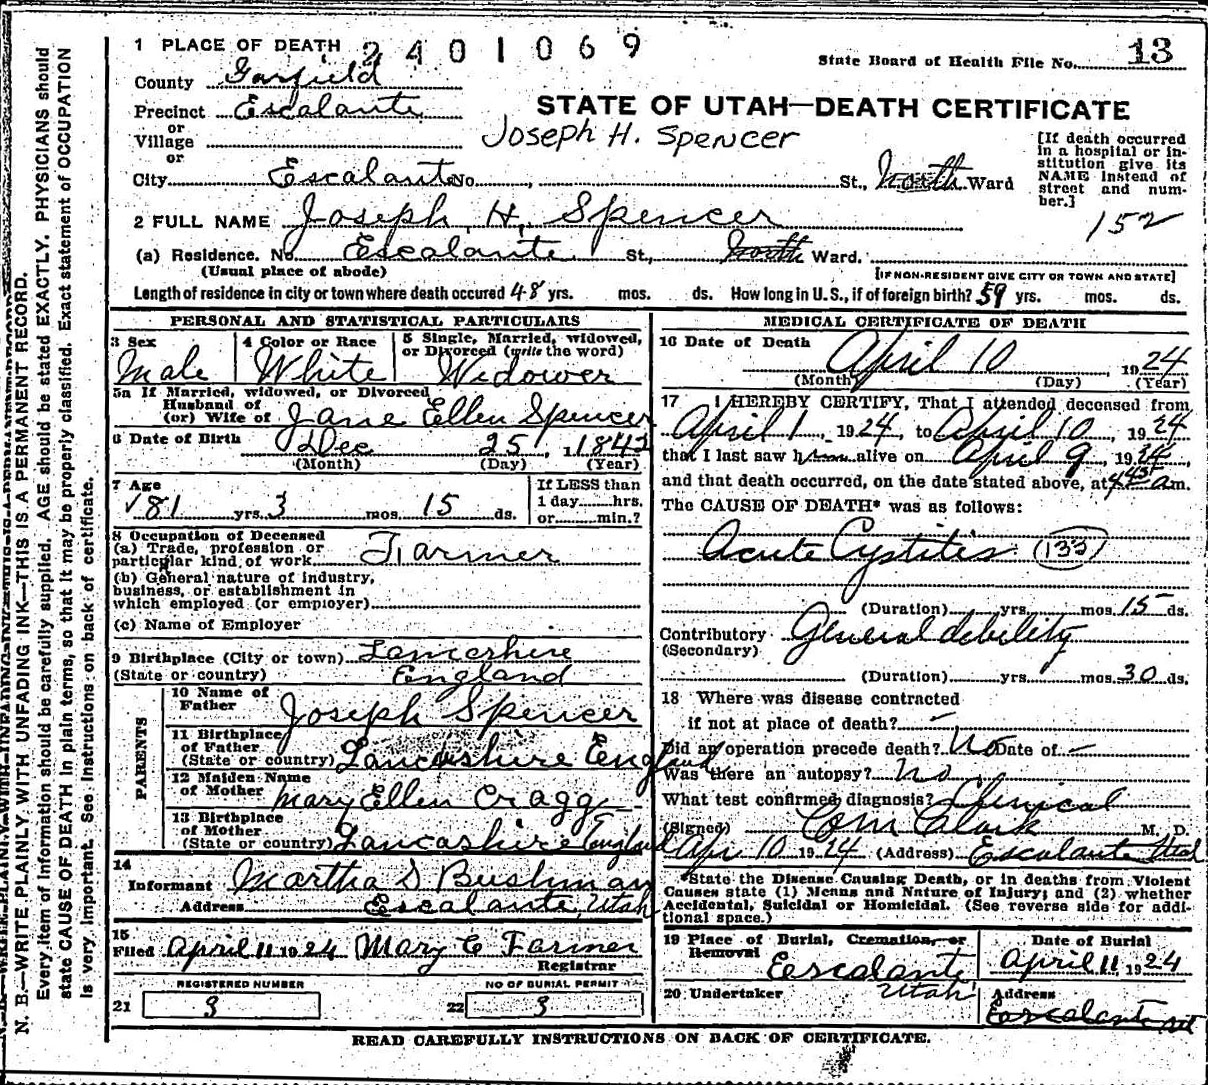 1 PLACE OF DEATH 2401069
State Board of Health File No. 13
County Garfield
Precinct Escalante
or
Village
or
City Escalante No. , St., North Ward
STATE OF UTAH—DEATH CERTIFICATE
Joseph H. Spencer
[If death occurred
in a hospital or in-
stitution give its
NAME instead of
street and num-
ber.]
152
2 FULL NAME Joseph H. Spencer
(a) Residence. No Escalante St., North Ward.
(Usual place of abode)
[IF NON-RESIDENT GIVE CITY OR TOWN AND STATE]
Length of residence in city or town where death occured 48 yrs. mos. ds. How long in U. S., if of foreign birth? 59 yrs. mos. ds.
PERSONAL AND STATISTICAL PARTICULARS
3 Sex
Male
4 Color or Race
White
5 Single, Married, widowed,
or Divorced (write the word)
Widower
5a If Married, widowed, or Divorced
Husband of
(or) Wife of Jane Ellen Spencer
6 Date of Birth Dec 25, 1842
(Month) (Day) (Year)
7 Age
81 yrs. 3 mos 15 ds.
If LESS than
1 day hrs.
or min.?
8 Occupation of Deceased
(a) Trade, profession or
particular kind of work Farmer
(b) General nature of industry,
business, or establishment in
which employed (or employer)
(c) Name of Employer
9 Birthplace (City or town) Lancashire
(State or country) England
PARENTS
10 Name of
Father Joseph Spencer
11 Birthplace
of Father
(State or country) Lancashire England
12 Maiden Name
of Mother Mary Ellen Cragg
13 Birthplace
of Mother
(State or country) Lancashire England
14
Informant Martha S Bushman
Address Escalante, Utah
15
Filed April 11 1924 Mary C Farmer
Registrar
REGISTERED NUMBER
21 3
NO OF BURIAL PERMIT
22 3
MEDICAL CERTIFICATE OF DEATH
16 Date of Death April 10, 1924
(Month) (Day) (Year)
17 I HEREBY CERTIFY, That I attended deceased from
April 1, 1924, to April 10, 1924
that I last saw him alive on April 9, 1924,
and that death occurred, on the date stated above, at 4 45 a m.
The CAUSE OF DEATH* was as follows:
Acute Cystitis (133)
(Duration) yrs. mos. 15 ds.
Contributory General debility
(Secondary)
(Duration) yrs. mos. 30 ds.
18 Where was disease contracted
if not at place of death? –
Did an operation precede death? No Date of –
Was there an autopsy? No
What test confirmed diagnosis? Clinical
(Signed) Clark M. D.
Apr 10 1924 (Address) Escalante Utah
*State the Disease Causing Death, or in deaths from Violent
Causes state (1) Means and Nature of Injury; and (2) whether
Accidental, Suicidal or Homicidal. (See reverse side for addi-
tional space.)
19 Place of Burial, Cremation, or
Removal Eescalante
Utah
Date of Burial
April 11 1924
20 Undertaker
Address
Escalante Ut
READ CAREFULLY INSTRUCTIONS ON BACK OF CERTIFICATE.
N. B.—WRITE PLAINLY, WITH UNFADING INK—THIS IS A PERMANENT RECORD.
Every item of information should be carefully supplied. AGE should be stated EXACTLY. PHYSICIANS should
state CAUSE OF DEATH in plain terms, so that it may be properly classified. Exact statement of OCCUPATION
is very important. See instructions on back of certificate.